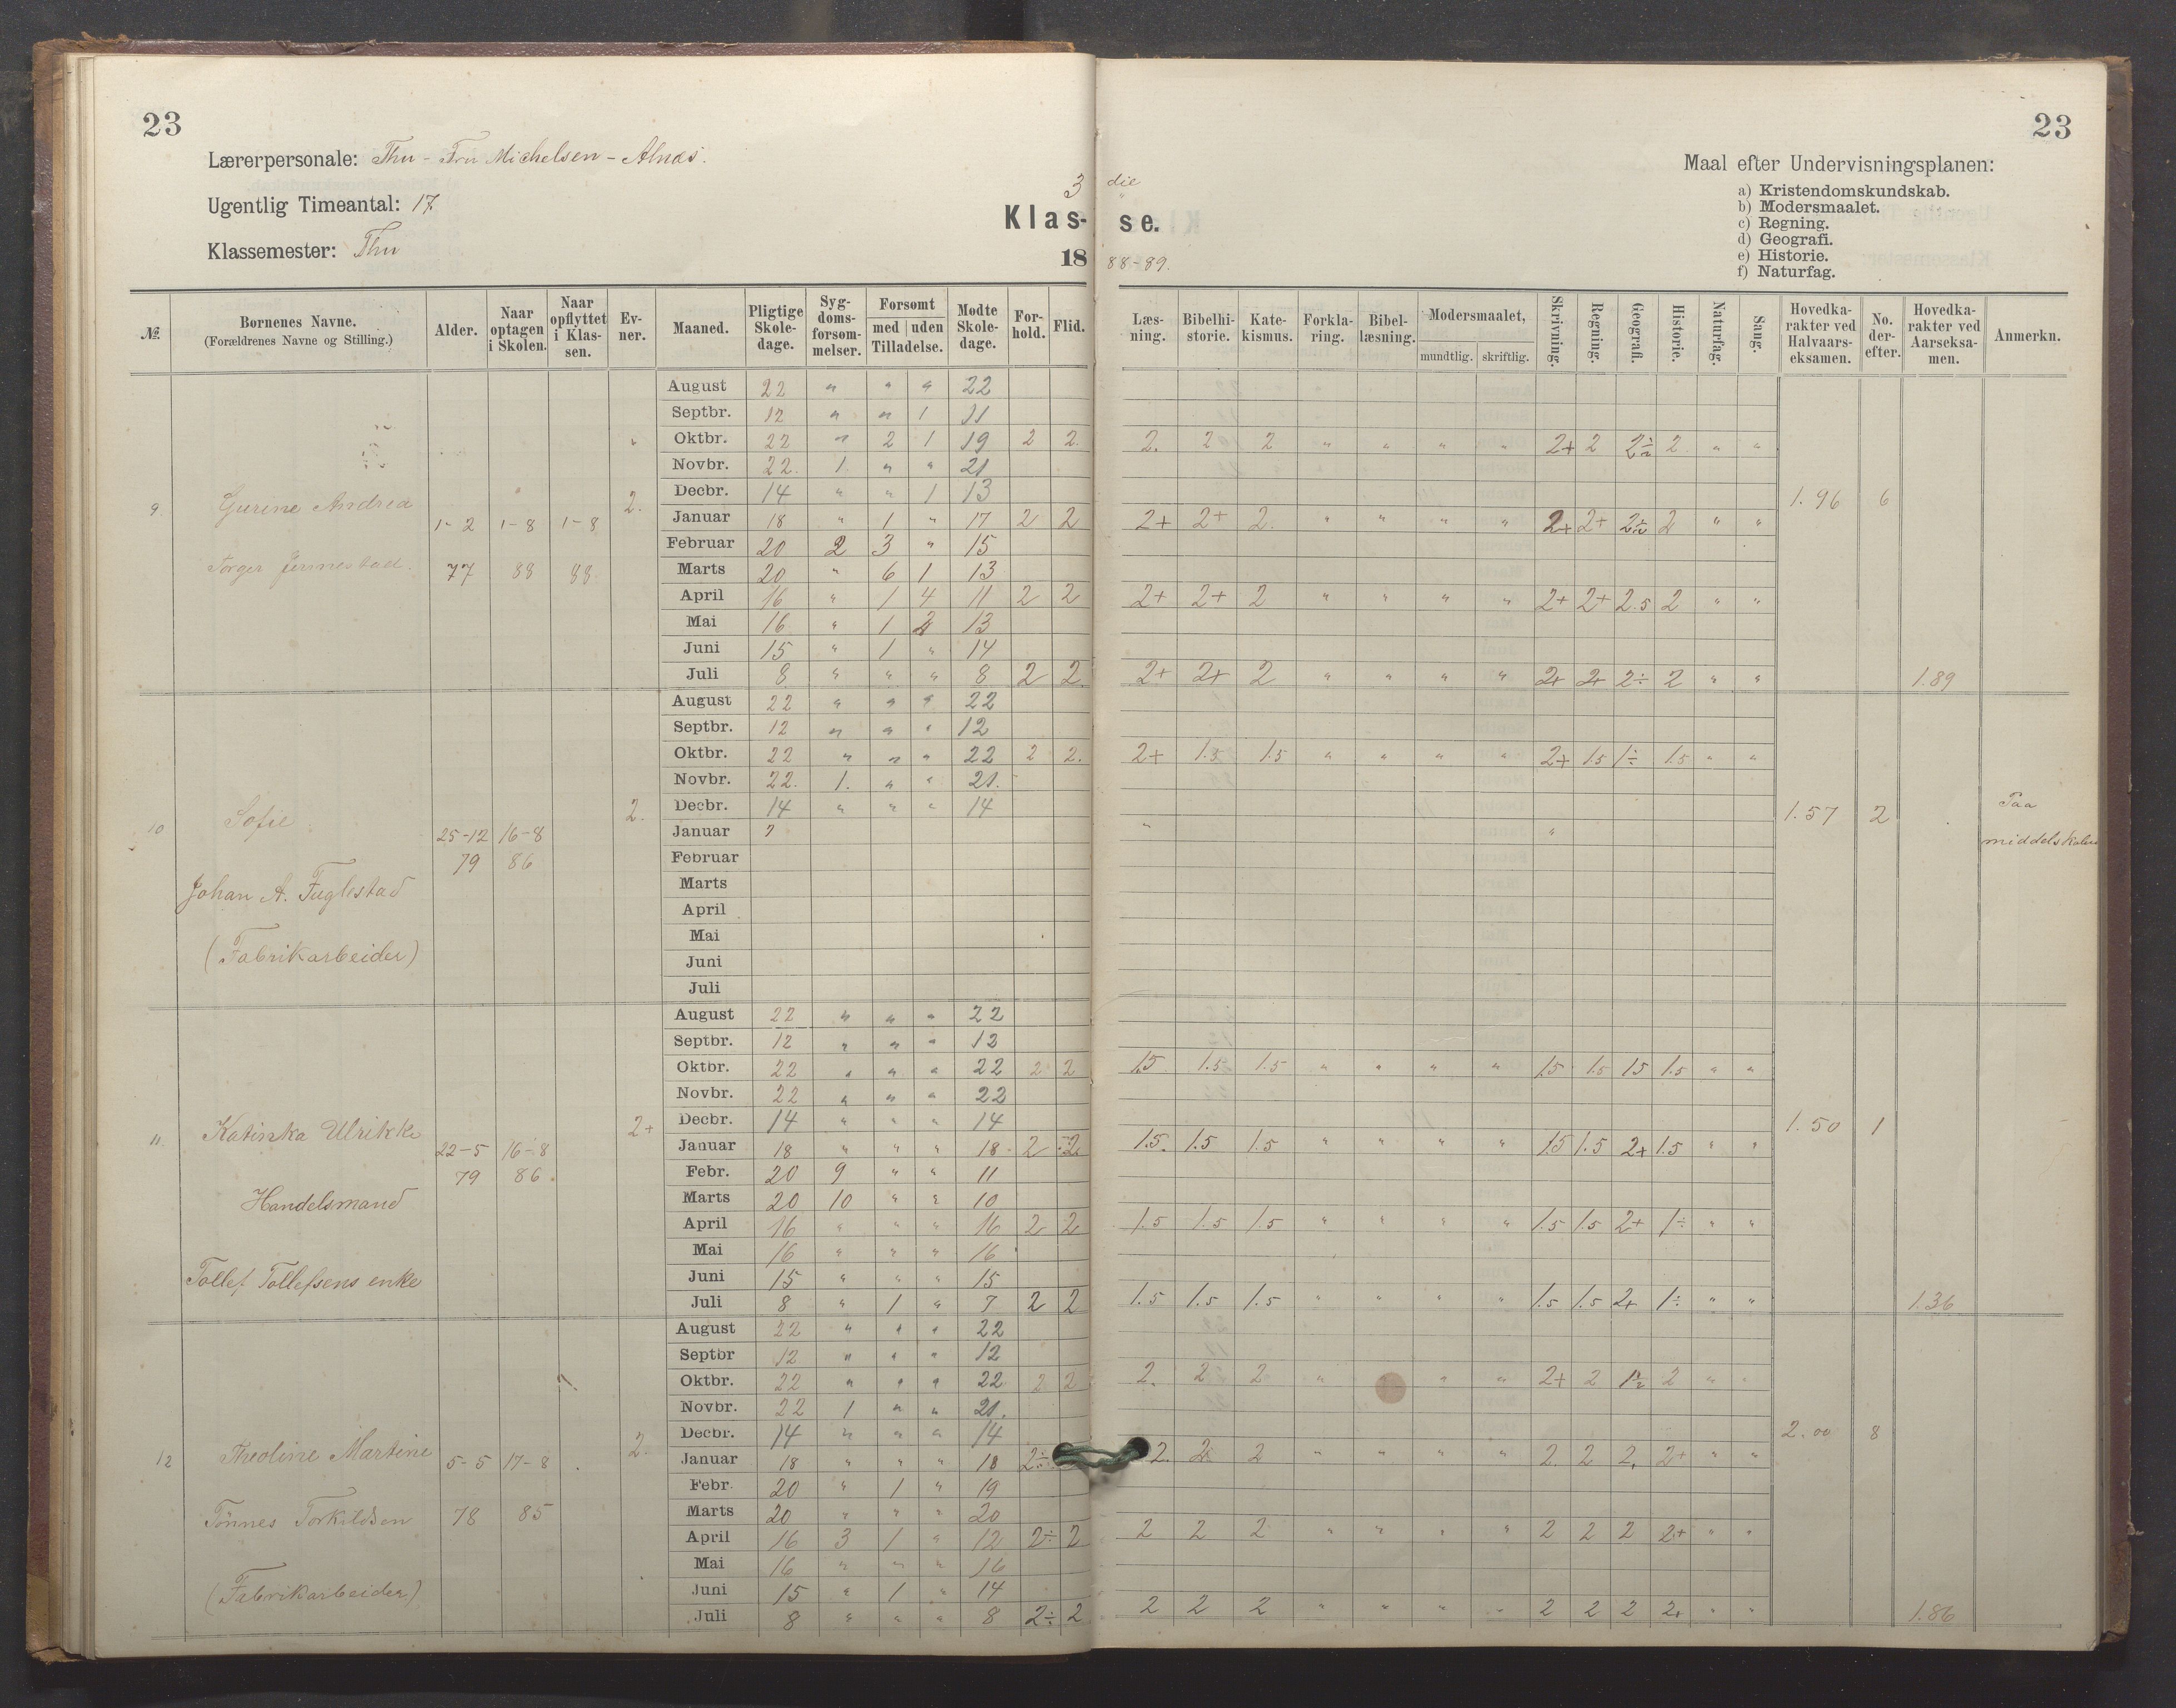 23
23
Lærerpersonale: Thu - Fru Michelsen - Alnæs.
Ugentlig Timeantal: 17.
Klassemester: Thu
3 die
Klas- se.
18 88-89.
Maal efter Undervisningsplanen:
a) Kristendomskundskab.
b) Modersmaalet.
c) Regning.
d) Geografi.
e) Historie.
f) Naturfag.
№. Børnenes Navne. (Forældrenes Navne og Stilling.) Alder. Naar optagen i Skolen. Naar opflyttet i Klassen. Evner. Maaned. Pligtige Skoledage. Sygdomsforsømmelser. Forsømt med uden Tilladelse. Mødte Skoledage. Forhold. Flid. Læsning. Bibelhistorie. Katekismus. Forklaring. Bibellæsning. Modersmaalet, mundtlig. skriftlig. Skrivning. Regning. Geografi. Historie. Naturfag. Sang. Hovedkarakter ved Halvaarseksamen. No. derefter. Hovedkarakter ved Aarseksamen. Anmerkn.
August 22 " " " 22
Septbr. 12 " " 1 11
Oktbr. 22 " 2 1 19 2 2. 2. 2 2 " " " " 2+ 2 2÷ 2 " "
Novbr. 22. 1. " " 21
Decbr. 14 " " 1 13
9. Gurine Andrea 1-2 1-8 1-8 2. 1.96 6
Januar 18 " 1 " 17 2 2 2+ 2+ 2. " " " " 2+ 2+ 2÷ 2 " "
Februar 20 2 3 " 15
Torger Jennestad. 77 88 88
Marts 20 " 6 1 13
April 16 " 1 4 11 2 2 2+ 2+ 2 " " " " 2+ 2+ 2.5 2 " "
Mai 16 " 1 2 13
Juni 15 " 1 " 14
Juli 8 " " " 8 2 2 2+ 2+ 2 " " " " 2+ 2+ 2÷ 2 " " 1.89
August 22 " " " 22
Septbr. 12 " " " 12
Oktbr. 22 " " " 22 2 2. 2+ 1.5 1.5 " " " " 2+ 1.5 1÷ 1.5 " "
Novbr. 22. 1. " " 21.
Decbr. 14 " " " 14
10 Sofie 25-12 16-8 2. 1.57 2 Paa
79 86 middelskolen
Januar " "
Februar
Marts
Johan A. Fuglestad
April
Mai
(Fabrikarbeider)
Juni
Juli
August 22 " " " 22
Septbr. 12 " " " 12
Oktbr. 22 " " " 22 2 2 1.5 1.5 1.5 " " " " 1.5 1.5 1.5 1.5 " "
Novbr. 22 " " " 22
Decbr. 14 " " " 14
11. Katinka Ulrikke 22-5 16-8 2+ 1.50 1
79 86.
Januar 18 " " " 18 2 2 1.5. 1.5 1.5 " " " " 1.5 1.5 2+ 1.5 " "
Febr. 20 9 " " 11
Marts 20 10 " " 10
Handelsmand
April 16 " " " 16 2 2 1.5 1.5 1.5 " " " " 1.5 1.5 2+ 1÷ " "
Mai 16 " " " 16
Tollef Tollefsens enke
Juni 15 " " " 15
Juli 8 " 1 " 7 2 2 1.5 1.5 1.5 " " " " 1.5 1.5 2+ 1÷ " " 1.36
August 22 " " " 22
Septbr 12 " " " 12
Oktbr. 22 " " " 22 2 2 2. 2 2 " " " " 2+ 2 1÷ 2 " "
Novbr. 22 1 " " 21.
Decbr. 14 " " " 14
12 Theoline Martine 5-5 17-8 2. 2.00 8
Januar 18 " " " 18 2÷ 2. 2 2 " " " " 2. 2 2. 2+ " "
Febr. 20 " 1 " 19
Marts 20 " " " 20
Tönnes Torkildsen 78 85
April 16 3 1 " 12 2÷ 2 2 2 2 " " " " 2 2 2 2+ " "
Mai 16 " " " 16
(Fabrikarbeider)
Juni 15 " 1 " 14
Juli 8 " " " 8 2÷ 2 2 2 2 " " " " 2 2 2 2+ " " 1.86